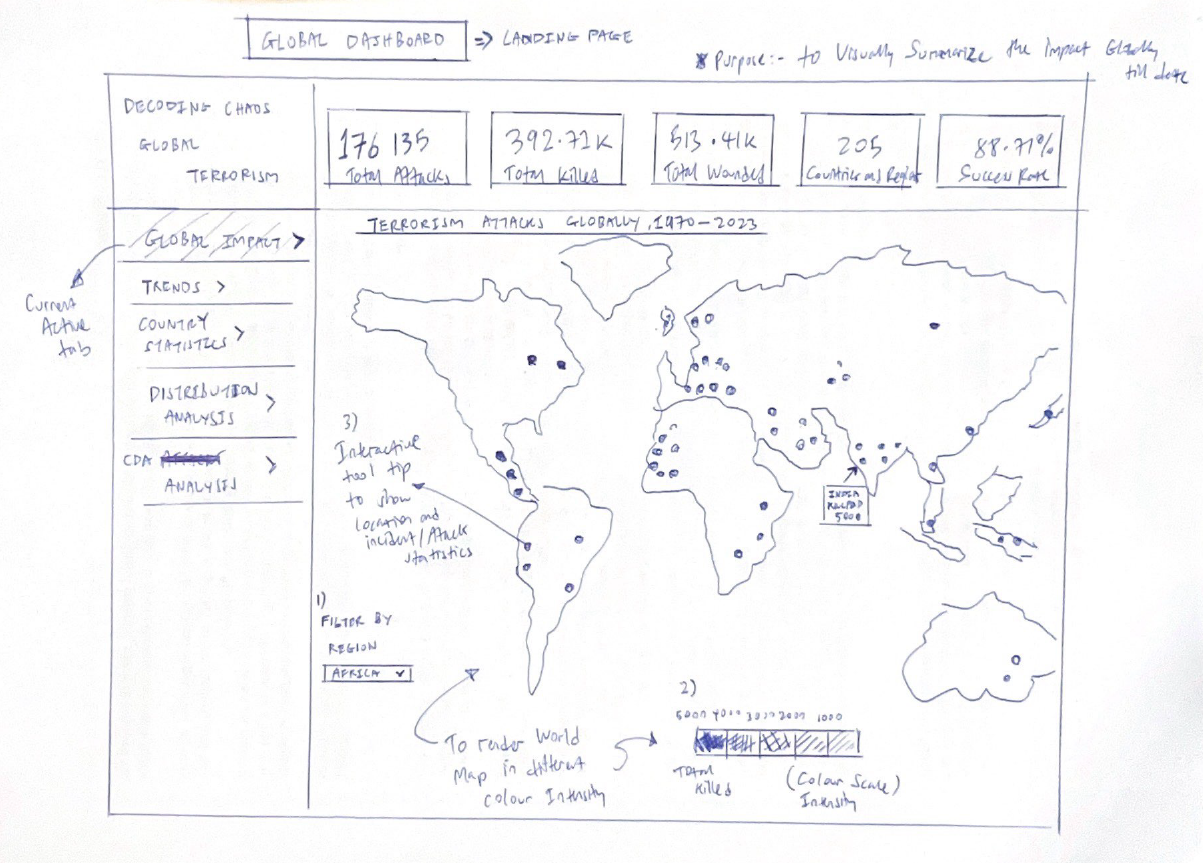 GLOBAL DASHBOARD => LANDING PAGE
* Purpose:- to Visually Summarize the Impact Globally
till date
DECODING CHAOS
GLOBAL
TERRORISM
176 135
Total Attacks
392.71K
Total Killed
513.41K
Total Wounded
205
Countries and Region
88.71%
Success Rate
TERRORISM ATTACKS GLOBALLY, 1970-2023
GLOBAL IMPACT >
TRENDS >
COUNTRY
STATISTICS >
DISTRIBUTION >
ANALYSIS
CDA
ANALYSIS >
Current
Active
tab
3)
Interactive
tool tip
to show
location and
incident/Attack
statistics
INDIA
KILLED
5000
1)
FILTER BY
REGION
AFRICA
To render World
Map in different
Colour Intensity
2)
5000 4000 3000 2000 1000
Total
Killed
(Colour Scale)
Intensity